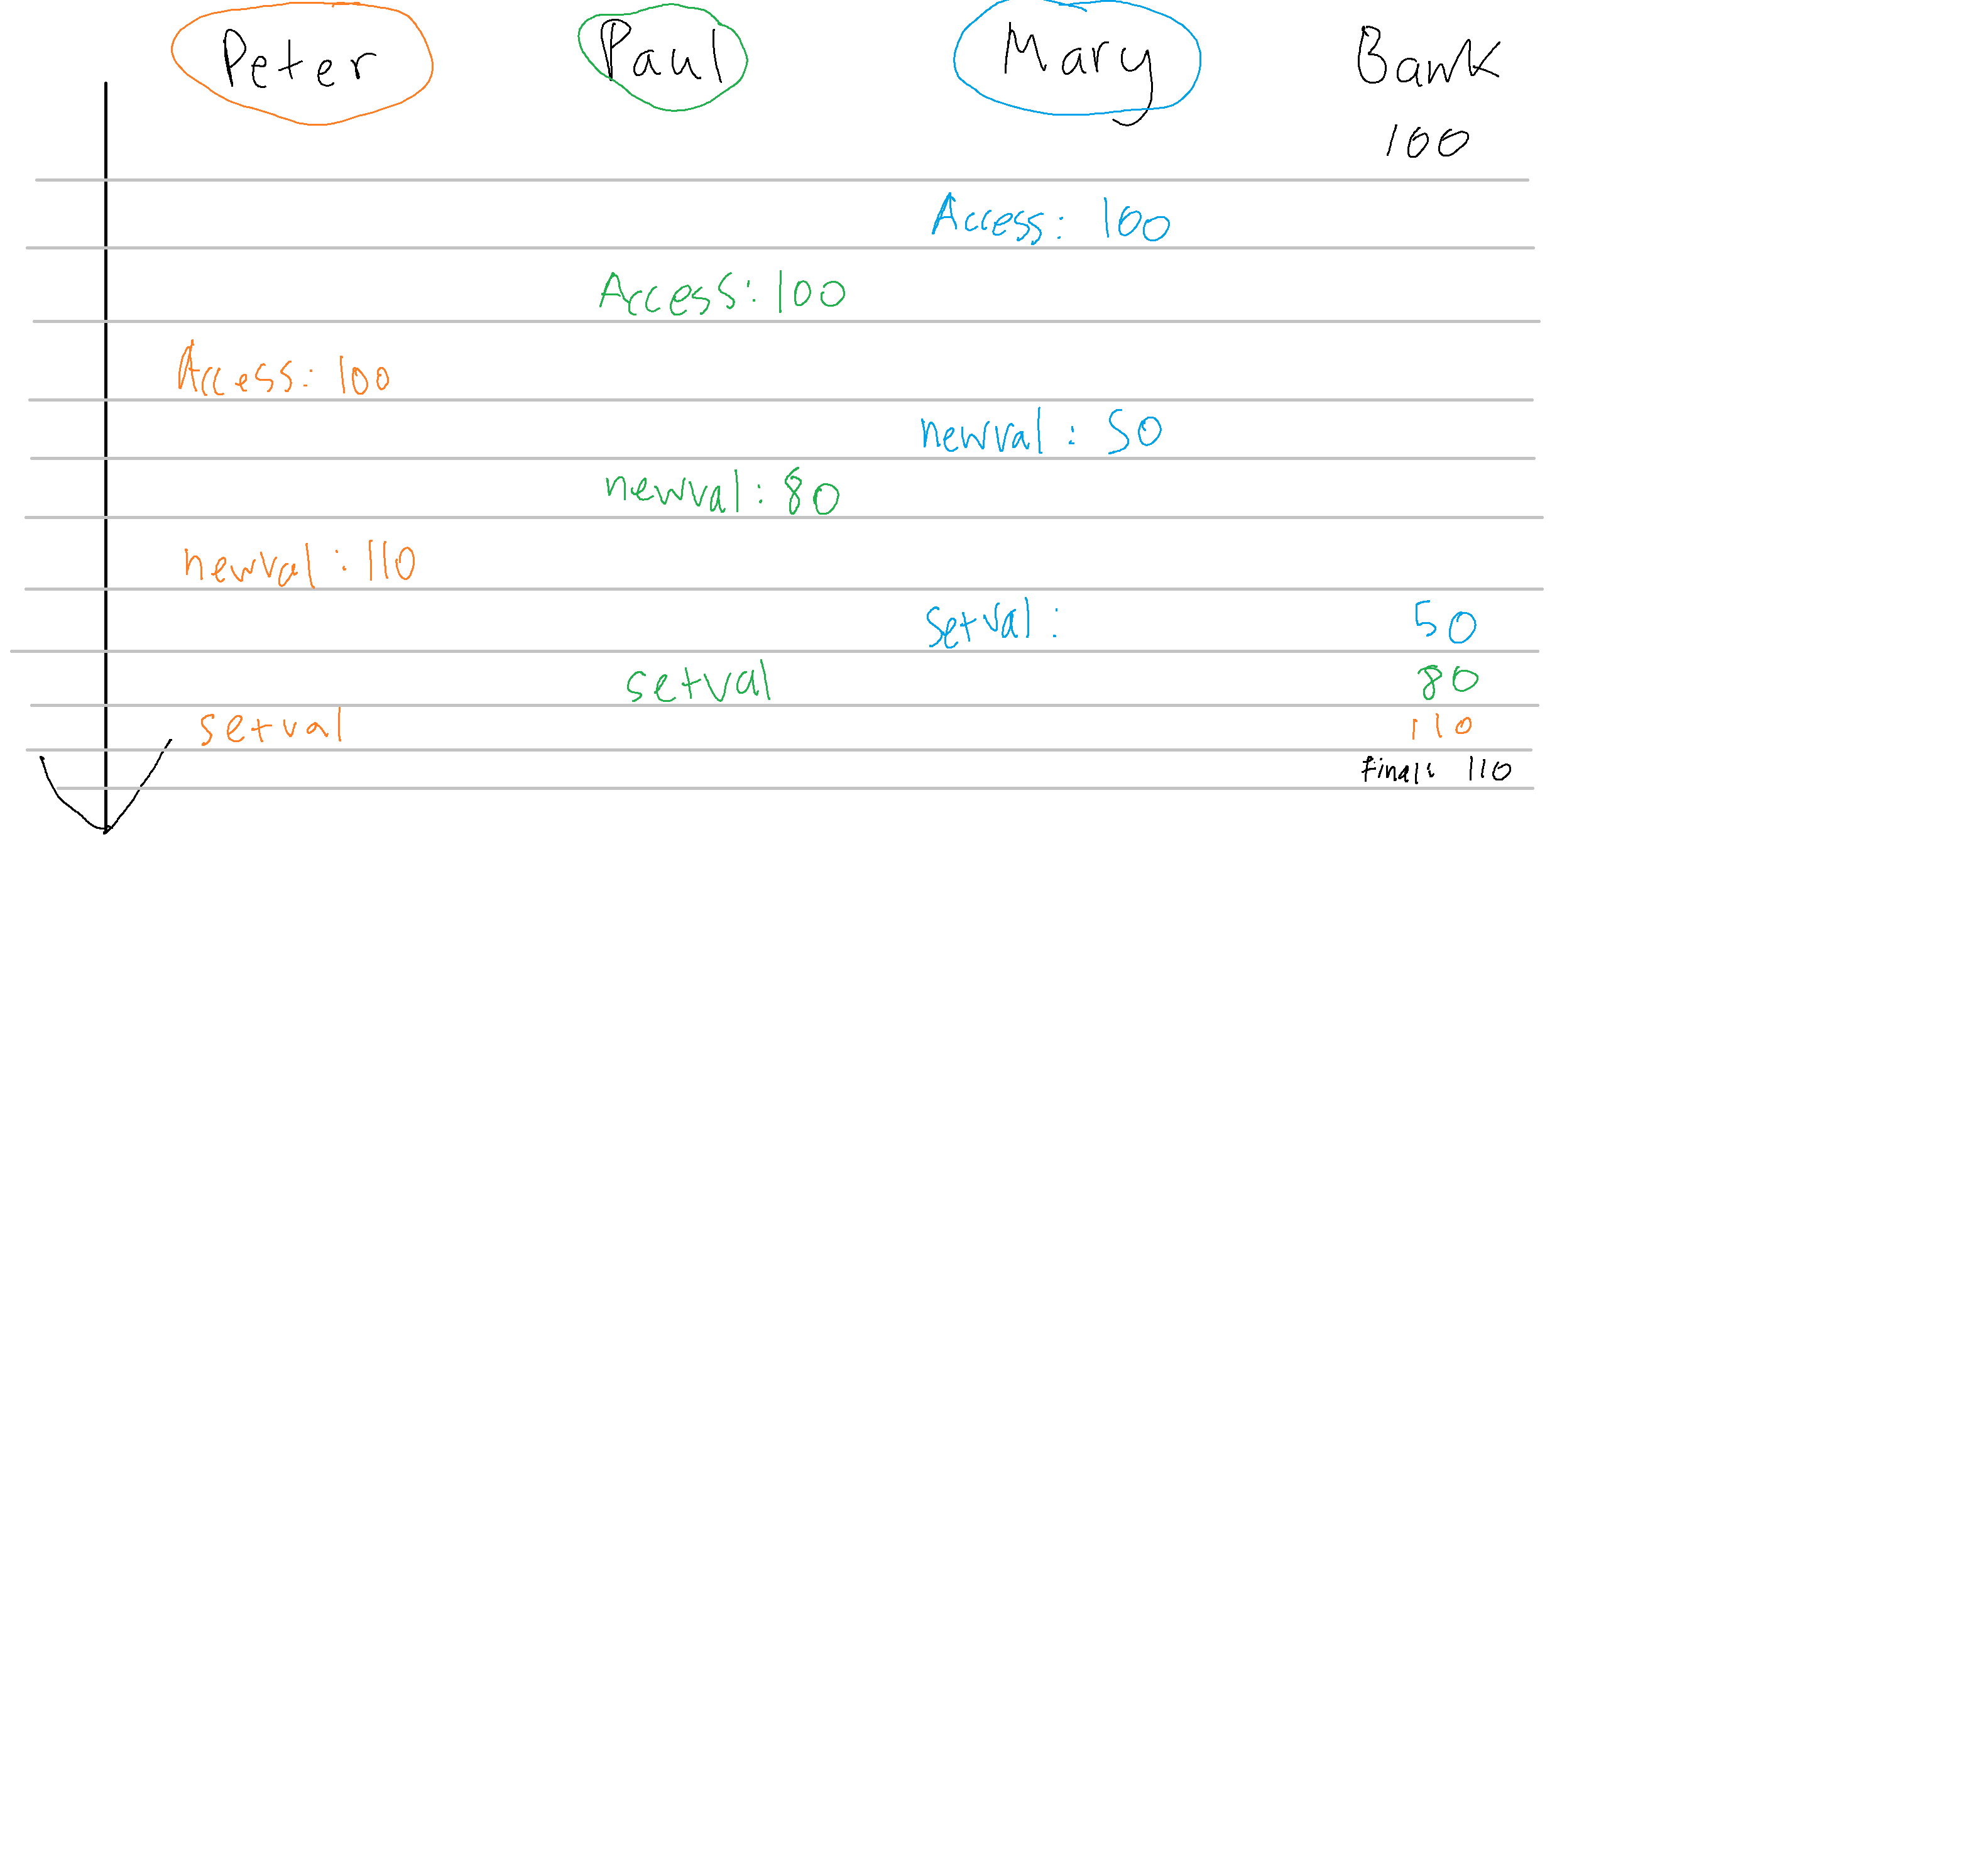 Peter Paul Mary Bank
100
Access: 100
Access: 100
Access: 100
newval: 50
newval: 80
newval: 110
setval: 50
setval 80
setval 110
Final: 110